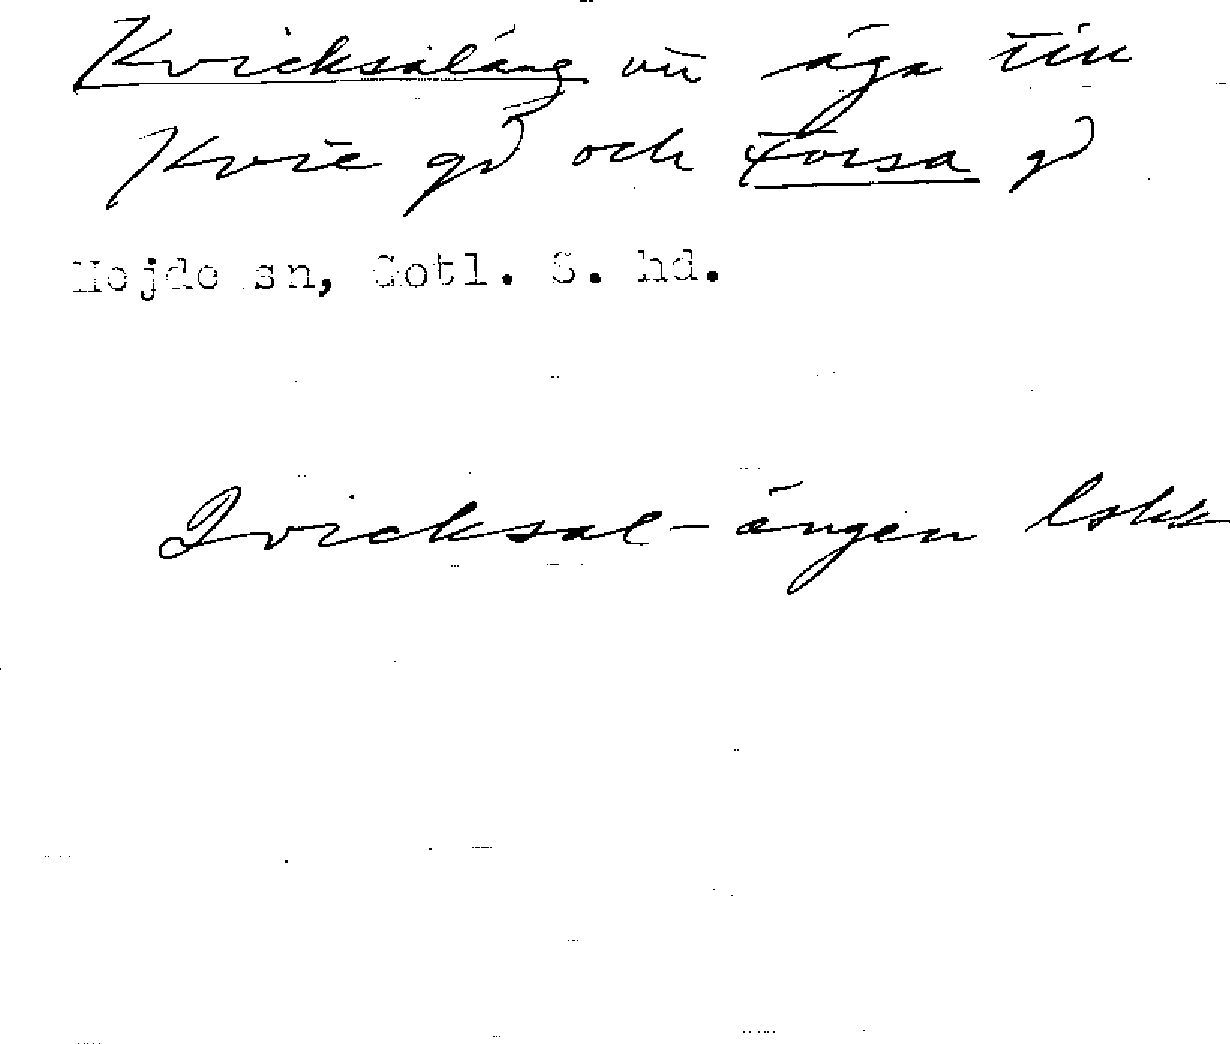 Kvicksaläng nu äga till
Kvie gd och Forsa gd
Hejde sn, Gotl. S. hd.
Qvicksal-ängen lskk